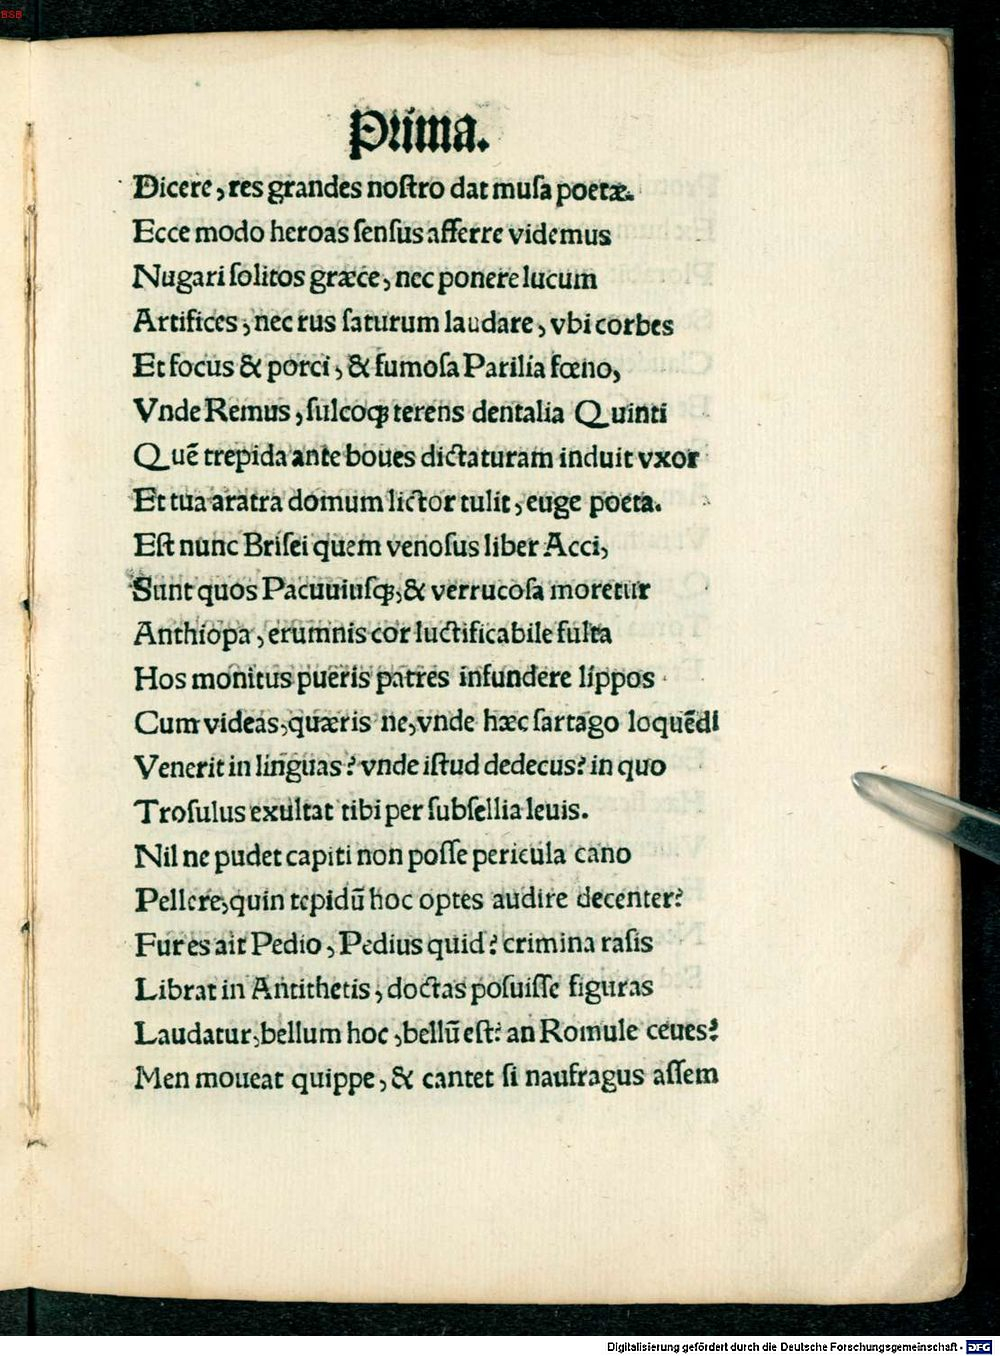 BSB
Prima.
Dicere, res grandes nostro dat musa poetæ.
Ecce modo heroas sensus afferre videmus
Nugari solitos græce, nec ponere lucum
Artifices, nec rus saturum laudare, vbi corbes
Et focus & porci, & fumosa Parilia fœno,
Vnde Remus, sulcoqꝫ terens dentalia Quinti
Quē trepida ante boues dictaturam induit vxor
Et tua aratra domum lictor tulit, euge poeta.
Est nunc Brisei quem venosus liber Acci,
Sunt quos Pacuuiusqꝫ, & verrucosa moretur
Anthiopa, erumnis cor luctificabile fulta
Hos monitus pueris patres infundere lippos
Cum videas, quæris ne, vnde hæc sartago loquēdi
Venerit in linguas? vnde istud dedecus? in quo
Trosulus exultat tibi per subsellia leuis.
Nil ne pudet capiti non posse pericula cano
Pellere, quin tepidū hoc optes audire decenter?
Fur es ait Pedio, Pedius quid? crimina rasis
Librat in Antithetis, doctas posuisse figuras
Laudatur, bellum hoc, bellū est? an Romule ceues?
Men moueat quippe, & cantet si naufragus assem
Digitalisierung gefördert durch die Deutsche Forschungsgemeinschaft - DFG